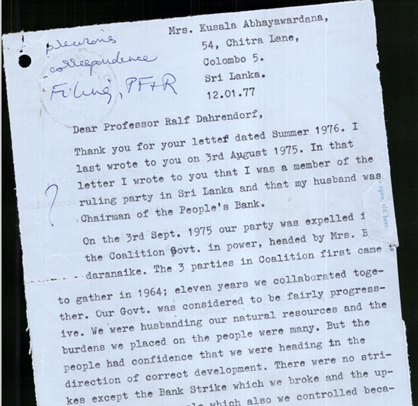 Mrs. Kusala Abhayawardana,
54, Chitra Lane,
Colombo 5.
Sri Lanka.
12.01.77
previous
correspondence
Filing, PF&R
Dear Professor Ralf Dahrendorf,
Thank you for your letter dated Summer 1976. I
last wrote to you on 3rd August 1975. In that
letter I wrote to you that I was a member of the
ruling party in Sri Lanka and that my husband was
Chairman of the People's Bank.
?
On the 3rd Sept. 1975 our party was expelled f
the Coalition Govt. in power, headed by Mrs. B
daranaike. The 3 parties in Coalition first came t
to gather in 1964; eleven years we collaborated toge-
ther. Our Govt. was considered to be fairly progress-
ive. We were husbanding our natural resources and the
burdens we placed on the people were many. But the
people had confidence that we were heading in the
direction of correct development. There were no stri-
kes except the Bank Strike which we broke and the up-
which also we controlled beca-